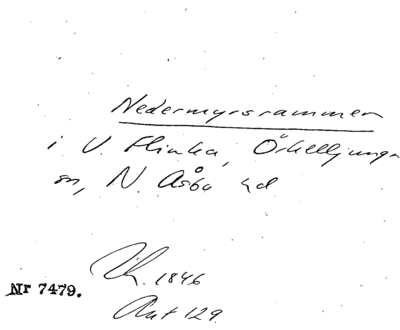 Nedermyrsrammen
i V. Flinka, Örkelljunga
sn, N. Åsbo hd
Ich. 1846
Nr 7479.
Ant 129